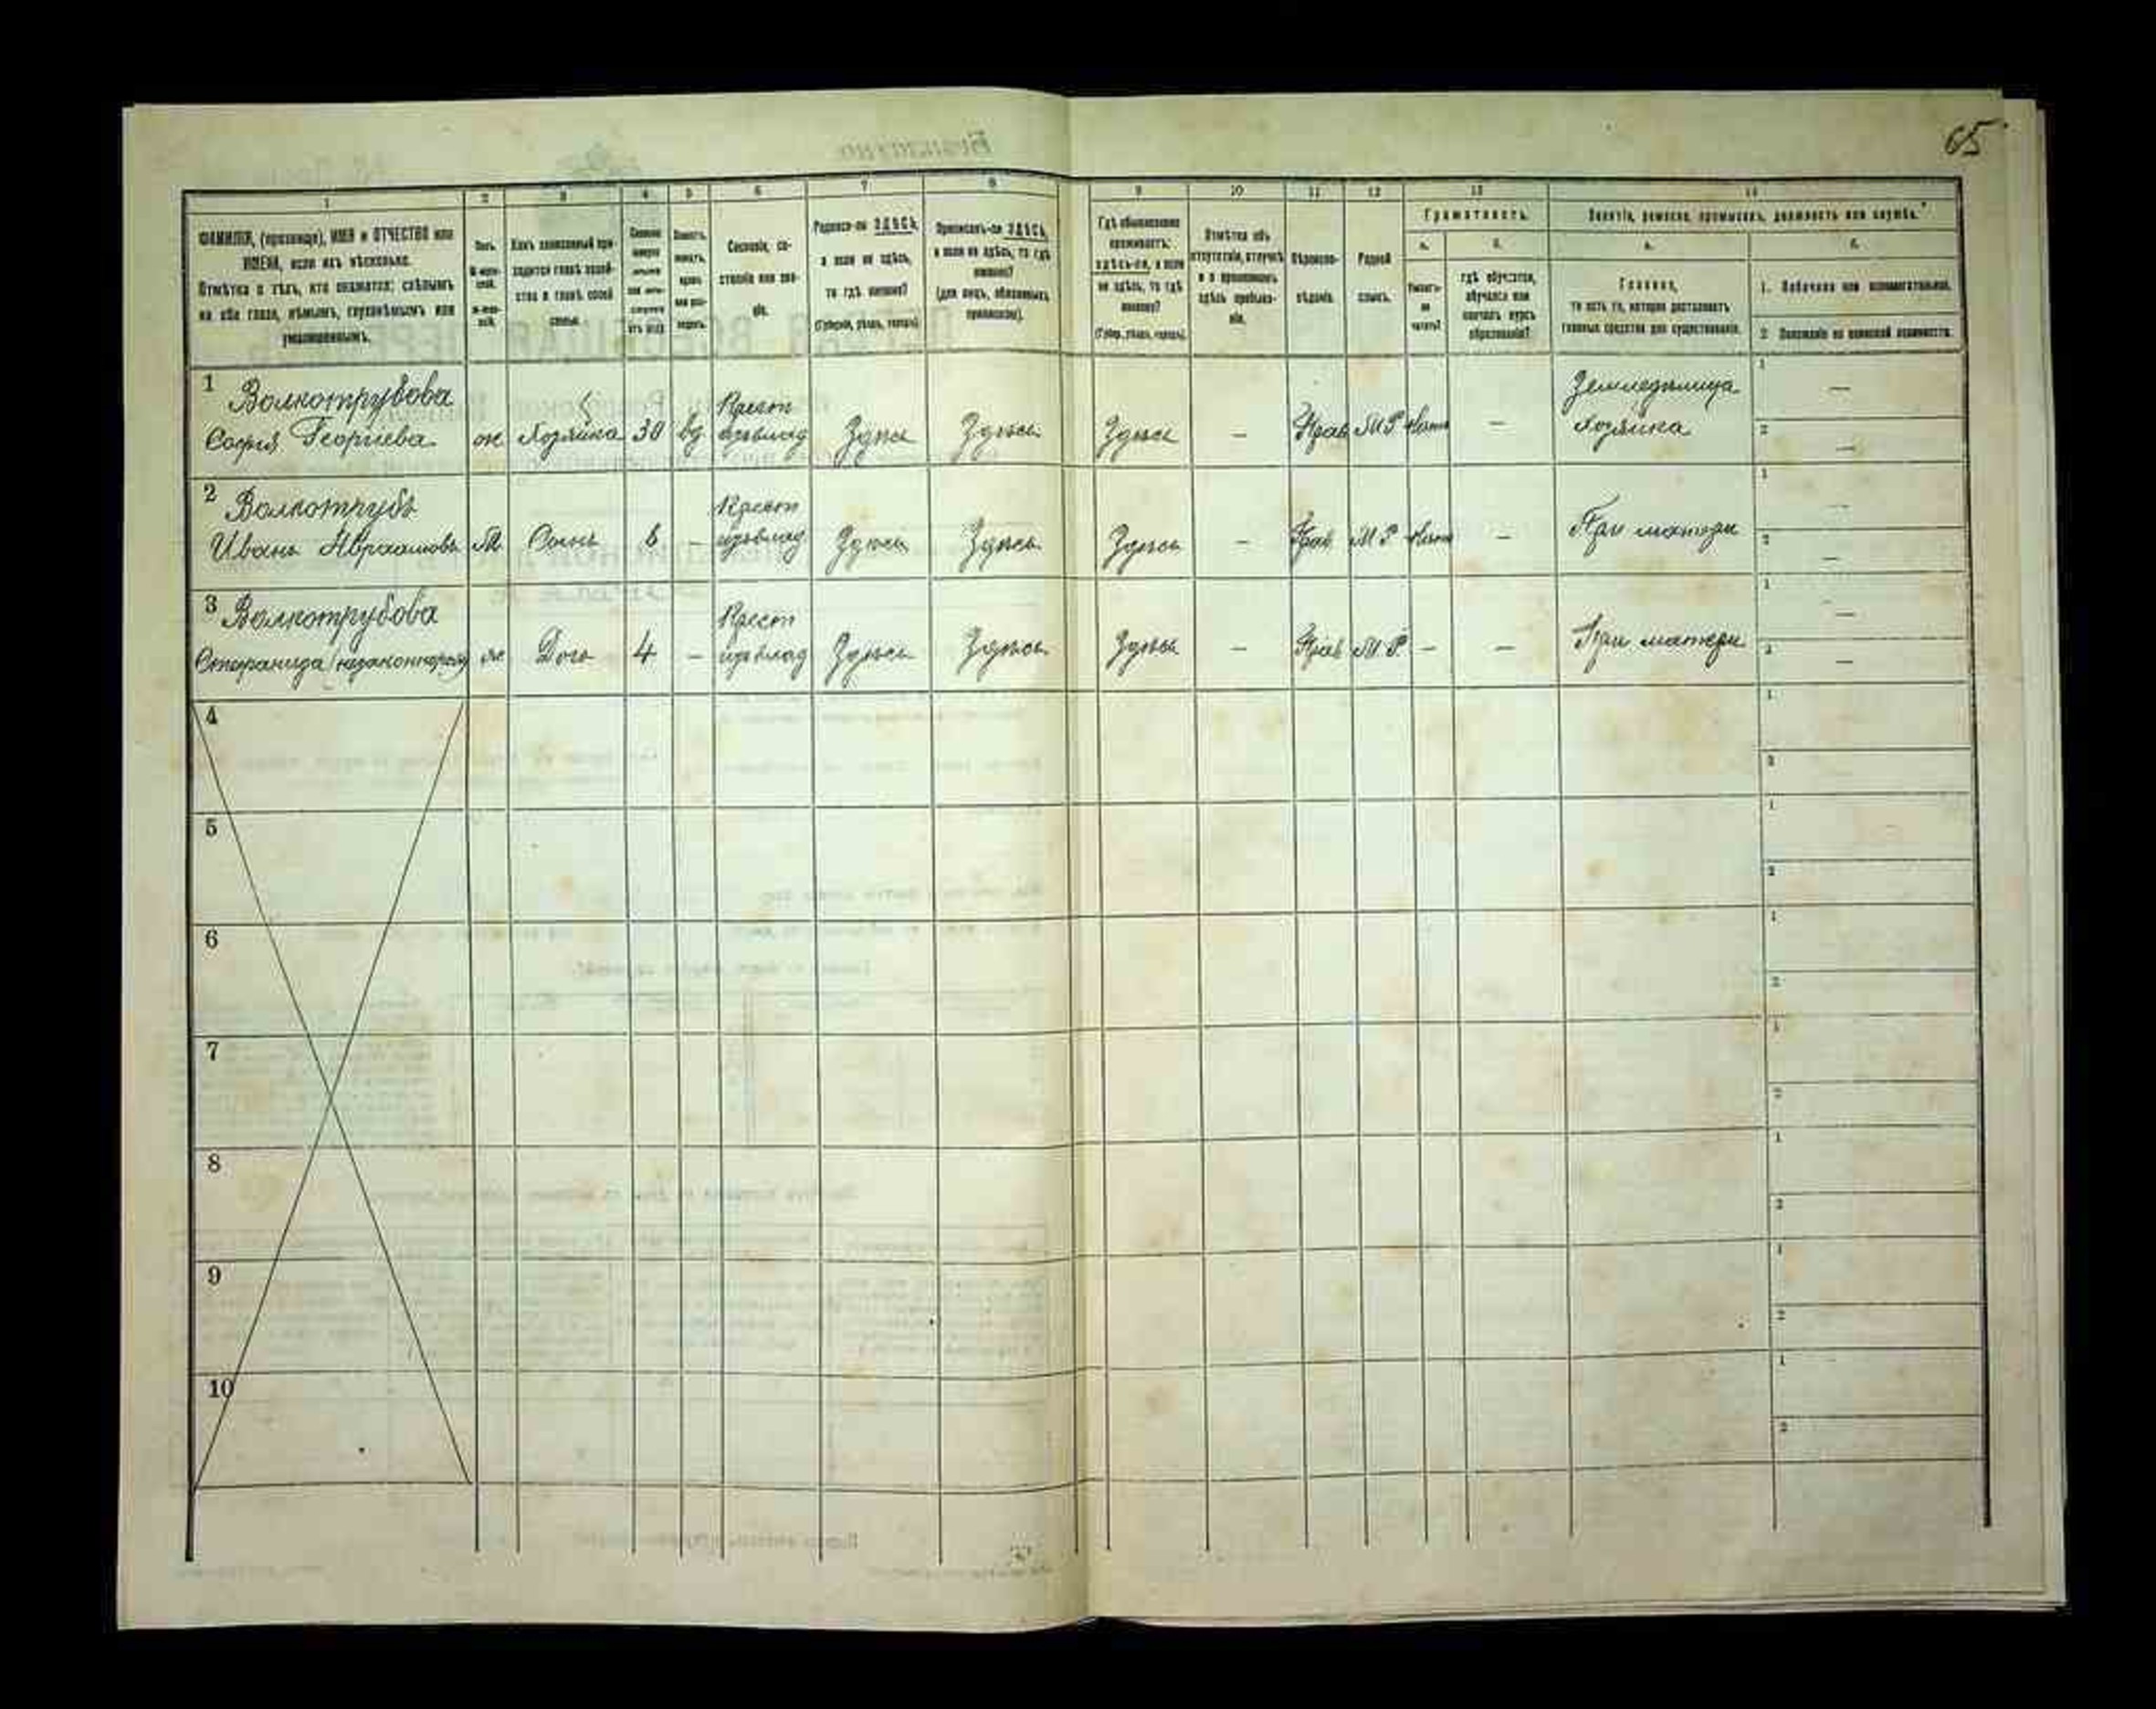 65
1 2 3 4 5 6 7 8 9 10 11 12 13 14
ФАМИЛІЯ, (прозвище), ИМЯ и ОТЧЕСТВО или
ИМЕНА, если ихъ нѣсколько.
Отмѣтка о тѣхъ, кто окажется: слѣпымъ
на оба глаза, нѣмымъ, глухонѣмымъ или
умалишеннымъ.
Полъ.
Какъ записанный при-
ходится главѣ хозяй-
ства и главѣ своей
семьи.
Сословіе, со-
стояніе или зва-
ніе.
Родился-ли ЗДѢСЬ,
а если не здѣсь,
то гдѣ именно?
(Губернія, уѣздъ, городъ)
Приписанъ-ли ЗДѢСЬ,
а если не здѣсь, то гдѣ
именно?
(для лицъ, обязанныхъ
припискою).
Гдѣ обыкновенно
проживаетъ:
здѣсь-ли, а если
не здѣсь, то гдѣ
именно?
(Губер., уѣздъ, городъ).
Отмѣтка объ
отсутствіи, отлучкѣ
и о временномъ
здѣсь пребыва-
ніи.
Вѣроиспо-
вѣданіе.
Родной
языкъ.
Грамотность.
а.
Умѣетъ-
ли
читать?
б.
гдѣ обучается,
обучался или
кончилъ курсъ
образованія?
Занятіе, ремесло, промыселъ, должность или служба.
а.
Главное,
то есть то, которое доставляетъ
главныя средства для существованія.
б.
1. Побочное или вспомогательное.
2. Положеніе по воинской повинности.
1 Волкотрубова
Софія Георгіева ж Хозяйка 30 вд Крест Здѣсь Здѣсь Здѣсь — Прав М Р — Земледѣлица Хозяйка 1 — 2 —
2 Волкотрубъ
Иванъ Авраамовъ М Сынъ 6 — Крест Здѣсь Здѣсь Здѣсь — Прав М Р — При матери 1 — 2 —
3 Волкотрубова
Стефанида ж Дочь 4 — Крест Здѣсь Здѣсь Здѣсь — Прав М Р — — При матери 1 — 2 —
4 1 2
5 1 2
6 1 2
7 1 2
8 1 2
9 1 2
10 1 2